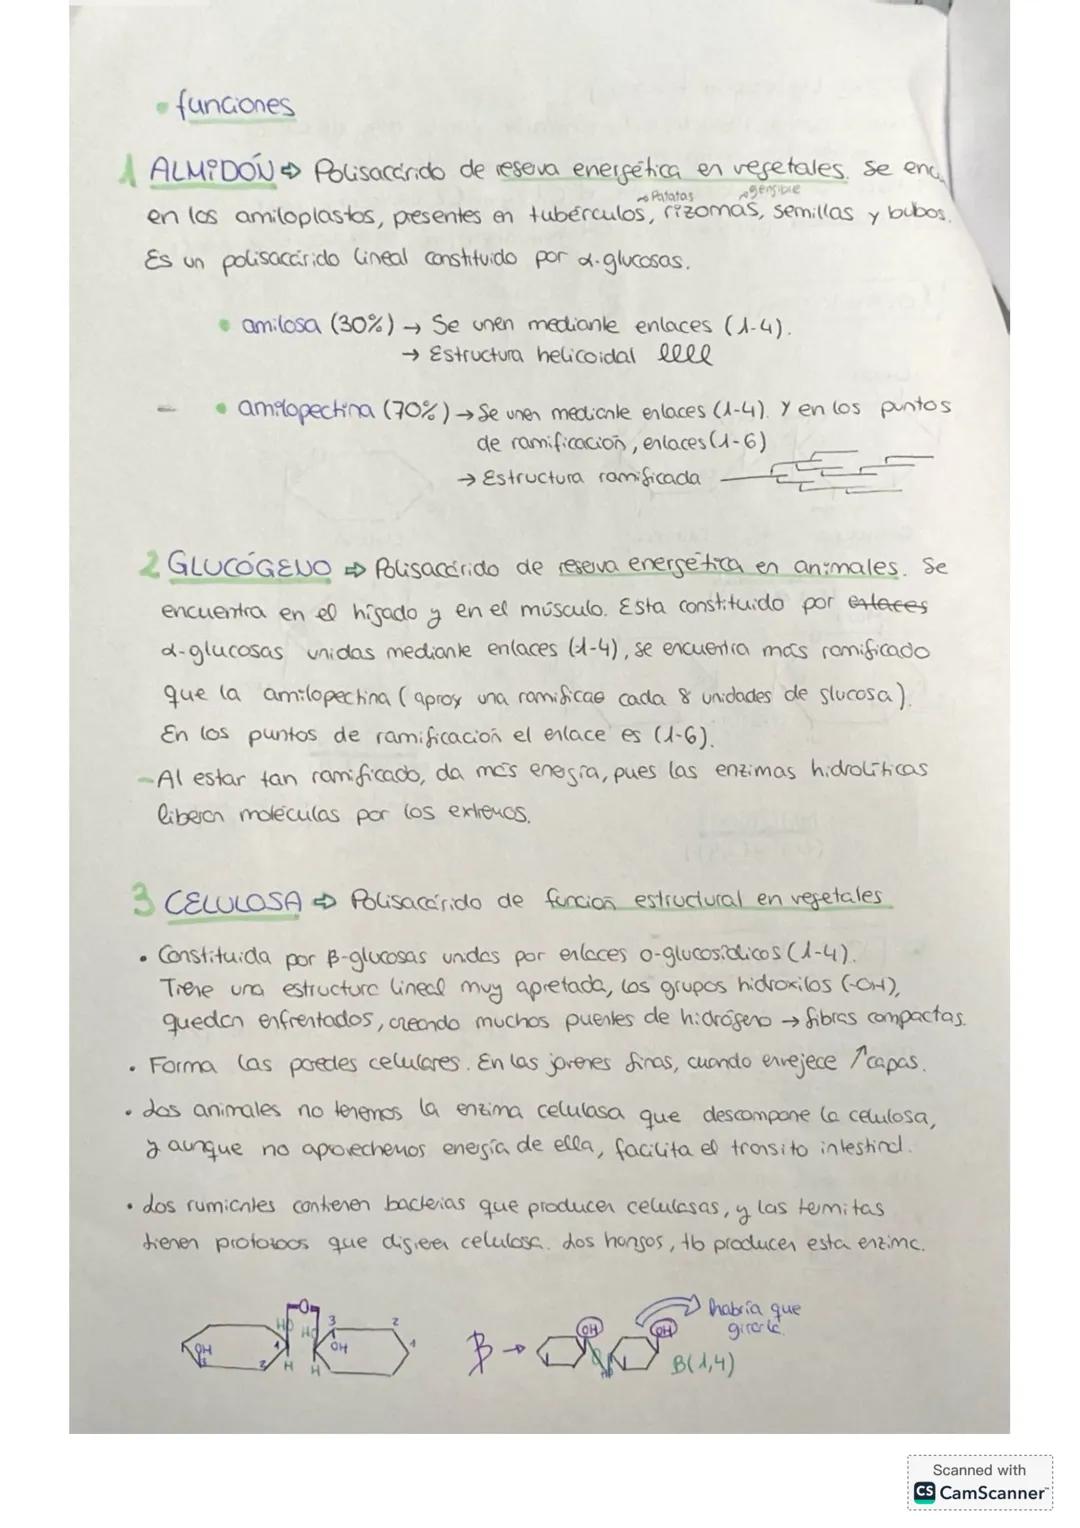 • funciones
1 ALMIDÓN ⇨ Polisacárido de reseva energética en vegetales. Se enc
→ Patatas → gengibre
en los amiloplastos, presentes en tubérculos, rizomas, semillas y bubos.
Es un polisacárido lineal constituido por α-glucosas.
• amilosa (30%) → Se unen mediante enlaces (1-4).
→ Estructura helicoidal
• amilopectina (70%) → Se unen mediante enlaces (1-4). Y en los puntos
de ramificación, enlaces (1-6)
→ Estructura ramificada
2 GLUCÓGENO ⇨ Polisacárido de reseva energética en animales. Se
encuentra en el hígado y en el músculo. Esta constituido por enlaces
α-glucosas unidas mediante enlaces (1-4), se encuentra más ramificado
que la amilopectina (aprox una ramificao cada 8 unidades de glucosa).
En los puntos de ramificación el enlace es (1-6).
- Al estar tan ramificado, da más energía, pues las enzimas hidrolíticas
liberan moléculas por los extremos.
3 CELULOSA ⇨ Polisacárido de función estructural en vegetales
• Constituida por β-glucosas unidas por enlaces o-glucosídicos (1-4).
Tiene una estructura lineal muy apretada, los grupos hidroxilos (-OH),
quedan enfrentados, creando muchos puentes de hidrógeno → fibras compactas.
• Forma las paredes celulares. En las jovenes finas, cuando envejece ↑ capas.
• Los animales no tenemos la enzima celulasa que descompone la celulosa,
y aunque no aprovechemos energía de ella, facilita el transito intestinal.
• Los rumiantes contienen bacterias que producen celulasas, y las termitas
tienen protozoos que digieren celulosa. Los hongos, tb producen esta enzima.
O
HO HO 3 2
OH 1 OH 1
3 2 H H
β → OH OH
O
habría que
girarla.
B(1,4)
Scanned with
CS CamScanner™